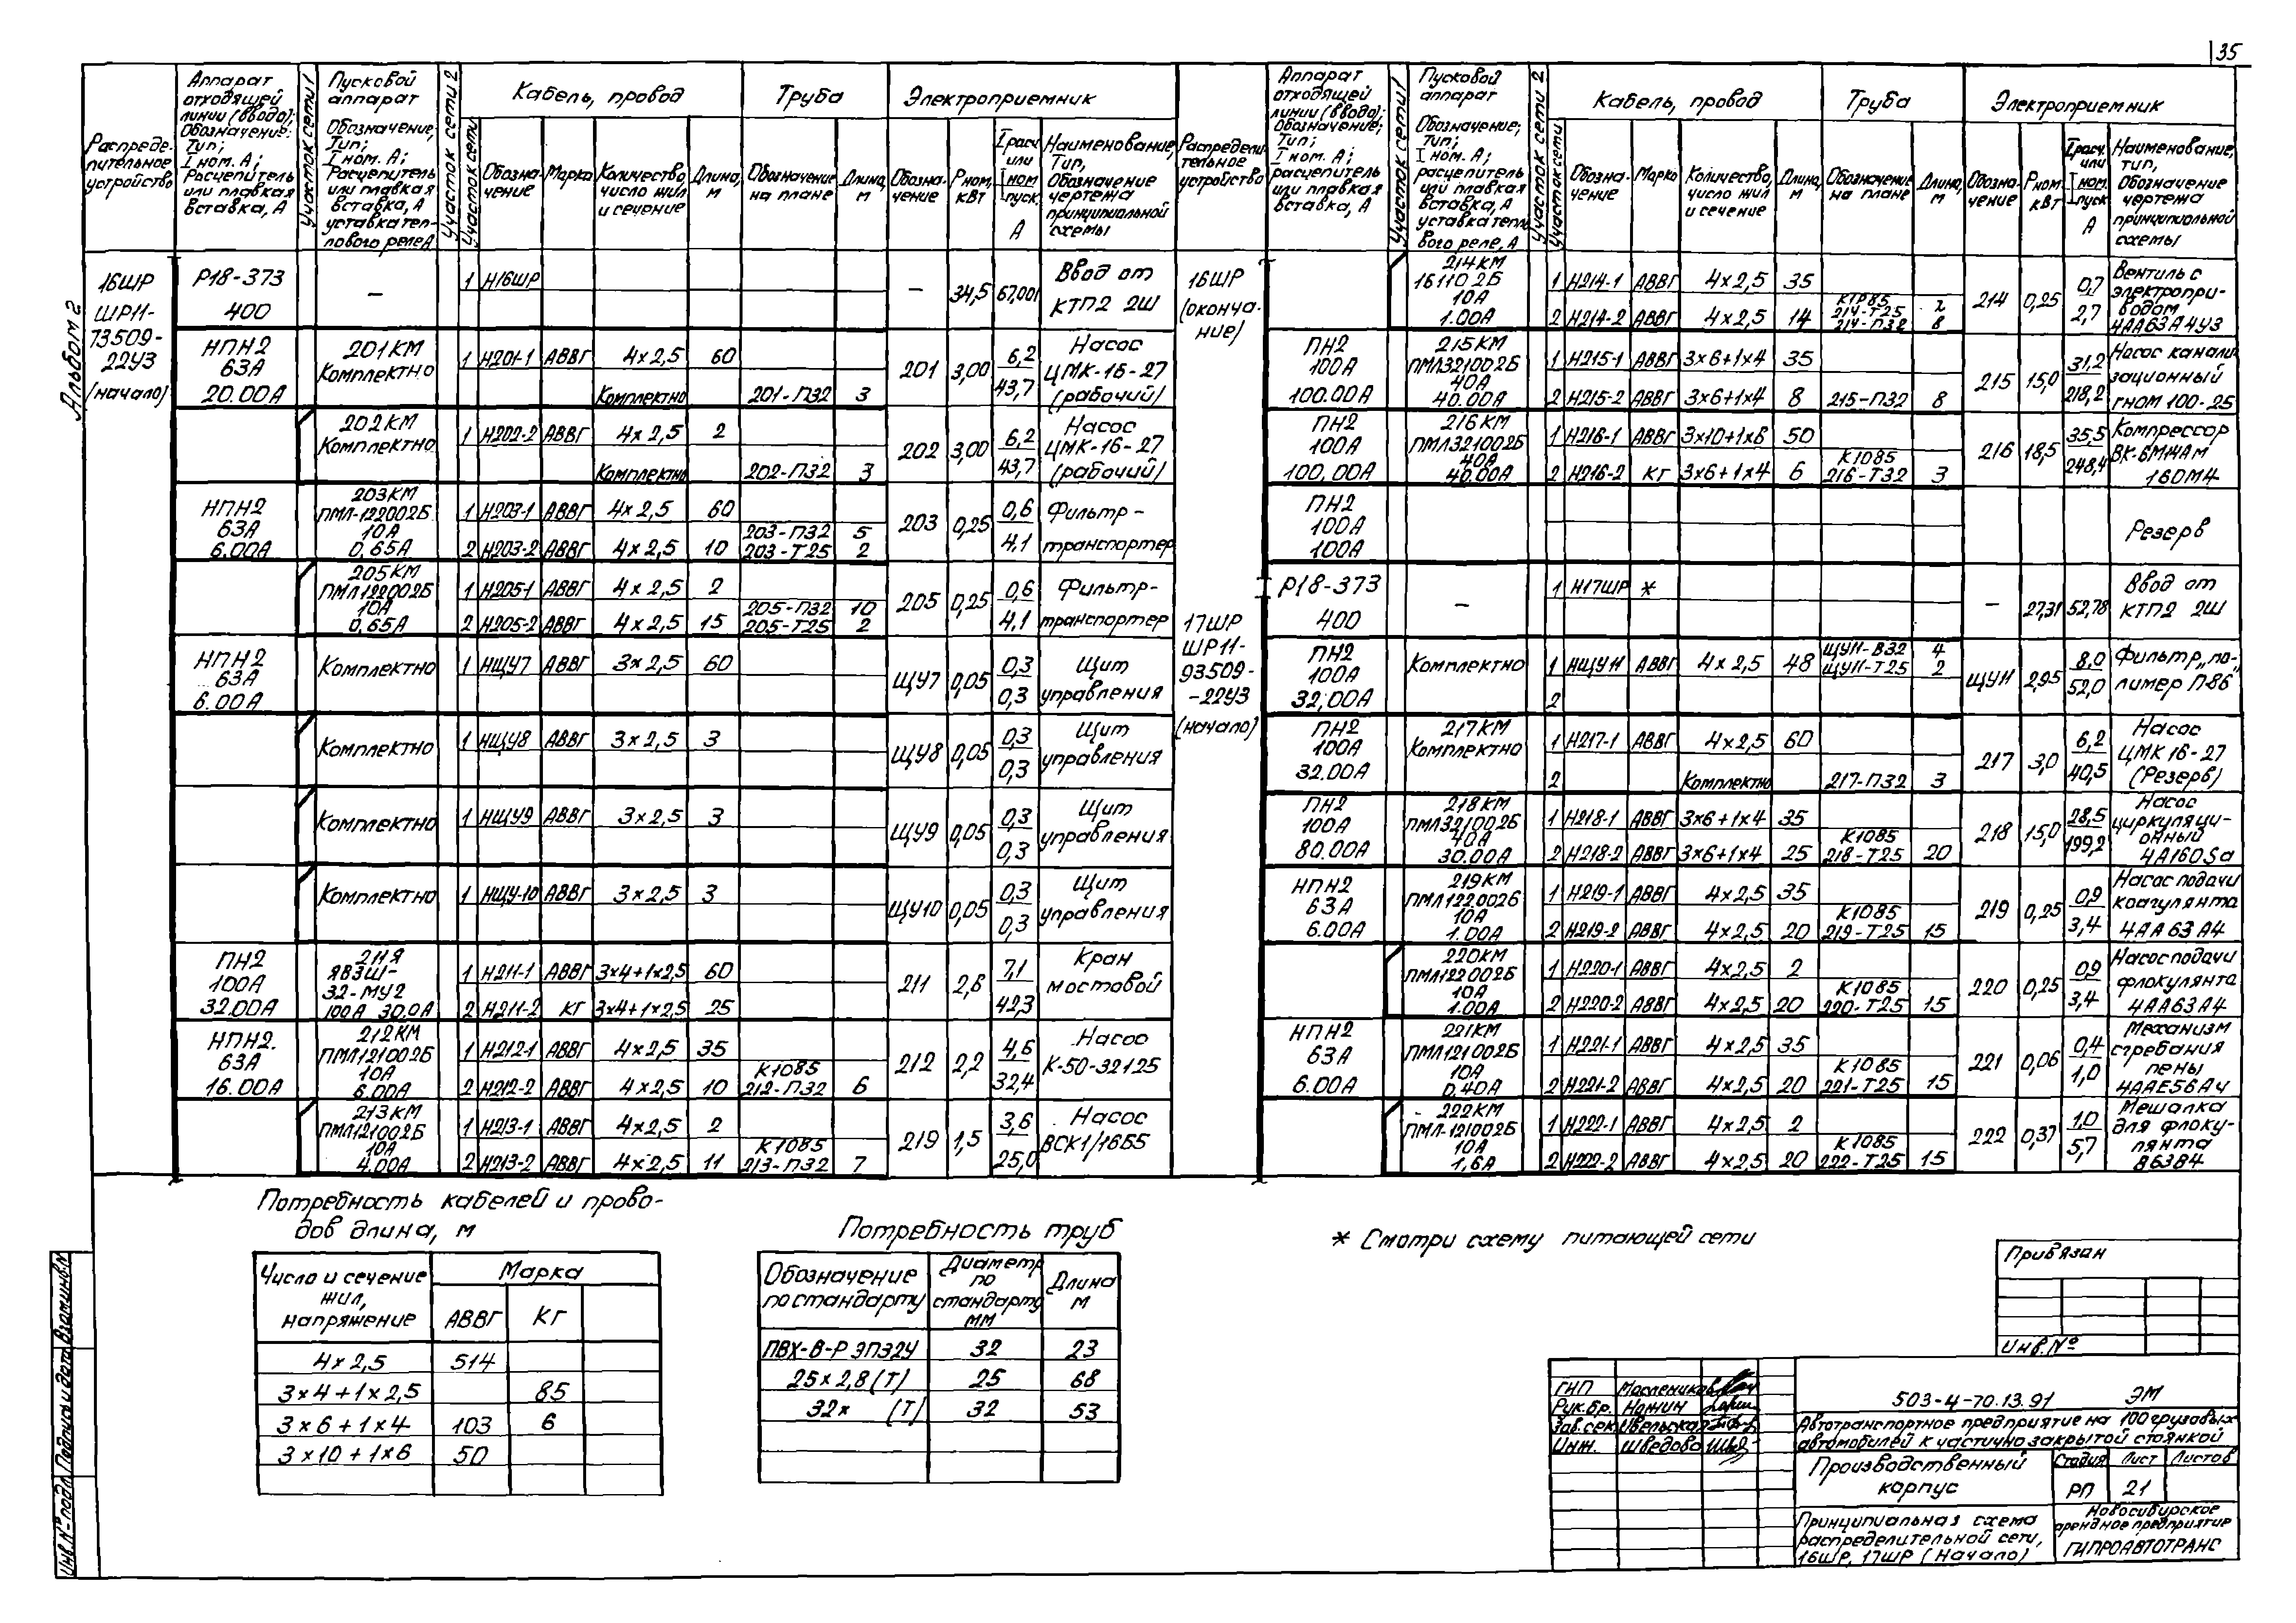 35
Альбом 2
Распределительное устройство
Аппарат отходящей линии (ввода); Обозначение; Тип; I ном. А; Расцепитель или плавкая вставка, А
Участок сети 1
Пусковой аппарат Обозначение; Тип; I ном. А; Расцепитель или плавкая вставка, А уставка теплового реле А
Участок сети 2
Кабель, провод
Участок сети
Обозначение
Марка
Количество, число жил и сечение
Длина, м
Труба
Обозначение на плане
Длина, м
Электроприемник
Обозначение
Рном. кВт
Iрасч. или Iном Iпуск. А
Наименование, Тип, Обозначение чертежа принципиальной схемы
16ШР ШР11-73509-22У3 (начало)
Р18-373 400 — 1 Н16ШР — 34,5 67,001 Ввод от КТП2 2Ш
НПН2 63А 20.00А 201КМ Комплектно 1 Н201-1 АВВГ 4х2,5 60 201 3,00 6,2 43,7 Насос ЦМК-16-27 (рабочий)
Комплектно 201-П32 3
202КМ Комплектно 1 Н202-2 АВВГ 4х2,5 2 202 3,00 6,2 43,7 Насос ЦМК-16-27 (рабочий)
Комплектно 202-П32 3
НПН2 63А 6.00А 203КМ ПМЛ-122002Б 10А 0,65А 1 Н203-1 АВВГ 4х2,5 60 203 0,25 0,6 4,1 Фильтр-транспортер
2 Н203-2 АВВГ 4х2,5 10 203-П32 5 203-Т25 2
205КМ ПМЛ122002Б 10А 0,65А 1 Н205-1 АВВГ 4х2,5 2 205 0,25 0,6 4,1 Фильтр-транспортер
2 Н205-2 АВВГ 4х2,5 15 205-П32 10 205-Т25 2
НПН2 63А 6.00А Комплектно 1 НЩУ7 АВВГ 3х2,5 60 ЩУ7 0,05 0,3 0,3 Щит управления
Комплектно 1 НЩУ8 АВВГ 3х2,5 3 ЩУ8 0,05 0,3 0,3 Щит управления
Комплектно 1 НЩУ9 АВВГ 3х2,5 3 ЩУ9 0,05 0,3 0,3 Щит управления
Комплектно 1 НЩУ-10 АВВГ 3х2,5 3 ЩУ10 0,05 0,3 0,3 Щит управления
ПН2 100А 32.00А 211Я ЯВЗШ-32-МУ2 100А 30.0А 1 Н211-1 АВВГ 3х4+1х2,5 60 211 2,8 7,1 42,3 Кран мостовой
2 Н211-2 КГ 3х4+1х2,5 25
НПН2. 63А 16.00А 212КМ ПМЛ121002Б 10А 6.00А 1 Н212-1 АВВГ 4х2,5 35 212 2,2 4,6 32,4 Насос К-50-32125
2 Н212-2 АВВГ 4х2,5 10 К1085 212-П32 6
213КМ ПМЛ121002Б 10А 4.00А 1 Н213-1 АВВГ 4х2,5 2 219 1,5 3,6 25,0 Насос ВСК1/16Б5
2 Н213-2 АВВГ 4х2,5 11 К1085 213-П32 7
Распределительное устройство
Аппарат отходящей линии (ввода); Обозначение; Тип; I ном. А; расцепитель или плавкая вставка, А
Участок сети 1
Пусковой аппарат Обозначение; Тип; I ном. А; расцепитель или плавкая вставка, А уставка теплового реле, А
Участок сети 2
Кабель, провод
Участок сети
Обозначение
Марка
Количество, число жил и сечение
Длина, м
Труба
Обозначение на плане
Длина, м
Электроприемник
Обозначение
Рном. кВт
Iрасч. или Iном. Iпуск А
Наименование, тип, Обозначение чертежа принципиальной схемы
16ШР (окончание)
214КМ 161102Б 10А 1.00А 1 Н214-1 АВВГ 4х2,5 35 214 0,25 0,7 2,7 Вентиль с электроприводом 4АА63А4У3
2 Н214-2 АВВГ 4х2,5 14 КТР85 214-Т25 2 214-П32 8
ПН2 100А 100.00А 215КМ ПМЛ321002Б 40А 40.00А 1 Н215-1 АВВГ 3х6+1х4 35 215 15,0 31,2 218,2 Насос канализационный гном 100-25
2 Н215-2 АВВГ 3х6+1х4 8 215-П32 8
ПН2 100А 100,00А 216КМ ПМЛ321002Б 40А 40.00А 1 Н216-1 АВВГ 3х10+1х6 50 216 18,5 35,5 248,4 Компрессор ВК-6МЖАМ 160М4
2 Н216-2 КГ 3х6+1х4 6 К1085 216-Т32 3
ПН2 100А 100А Резерв
17ШР ШР11-93509-22У3 (начало)
Р18-373 400 — 1 Н17ШР * — 27,31 52,78 Ввод от КТП2 2Ш
ПН2 100А 32,00А Комплектно 1 НЩУ11 АВВГ 4х2,5 48 ЩУ11-В32 4 ЩУ11-Т25 2 ЩУ11 2,95 8,0 52,0 Фильтр„полимер П86"
2
ПН2 100А 32.00А 217КМ Комплектно 1 Н217-1 АВВГ 4х2,5 60 217 3,0 6,2 40,5 Насос ЦМК16-27 (Резерв)
2 Комплектно 217-П32 3
ПН2 100А 80.00А 218КМ ПМЛ321002Б 40А 30.00А 1 Н218-1 АВВГ 3х6+1х4 35 218 15,0 28,5 199,2 Насос циркуляционный 4А160Sа
2 Н218-2 АВВГ 3х6+1х4 25 К1085 218-Т25 20
НПН2 63А 6.00А 219КМ ПМЛ122002Б 10А 1.00А 1 Н219-1 АВВГ 4х2,5 35 219 0,25 0,9 3,4 Насос подачи коагулянта 4АА63А4
2 Н219-2 АВВГ 4х2,5 20 К1085 219-Т25 15
220КМ ПМЛ122002Б 10А 1.00А 1 Н220-1 АВВГ 4х2,5 2 220 0,25 0,9 3,4 Насос подачи флокулянта 4АА63А4
2 Н220-2 АВВГ 4х2,5 20 К1085 220-Т25 15
НПН2 63А 6.00А 221КМ ПМЛ121002Б 10А 0.40А 1 Н221-1 АВВГ 4х2,5 35 221 0,06 0,4 1,0 Механизм сгребания пены 4ААЕ56А4
2 Н221-2 АВВГ 4х2,5 20 К1085 221-Т25 15
222КМ ПМЛ-121002Б 10А 1,6А 1 Н222-1 АВВГ 4х2,5 2 222 0,37 1,0 5,7 Мешалка для флокулянта 86384
2 Н222-2 АВВГ 4х2,5 20 К1085 222-Т25 15
Потребность кабелей и проводов длина, м
Число и сечение жил, напряжение
Марка
АВВГ КГ
4х2,5 514
3х4+1х2,5 85
3х6+1х4 103 6
3х10+1х6 50
Потребность труб
Обозначение по стандарту
Диаметр по стандарту мм
Длина м
ПВХ-В-Р ЭП32У 32 23
25х2,8(Т) 25 68
32х (Т) 32 53
* Смотри схему питающей сети
Привязан
Инв.№
ГИП Маслеников
Рук.бр. Нажин
Зав.сек.
Инж. Шведова
503-4-70.13.91 ЭМ
Автотранспортное предприятие на 100 грузовых автомобилей к частично закрытой стоянкой
Производственный корпус
Стадия Лист Листов
РП 21
Принципиальная схема распределительной сети, 16шр, 17шр (Начало)
Новосибирское арендное предприятие ГИПРОАВТОТРАНС
Инв.№ подл. Подпись и дата Взам.инв.№